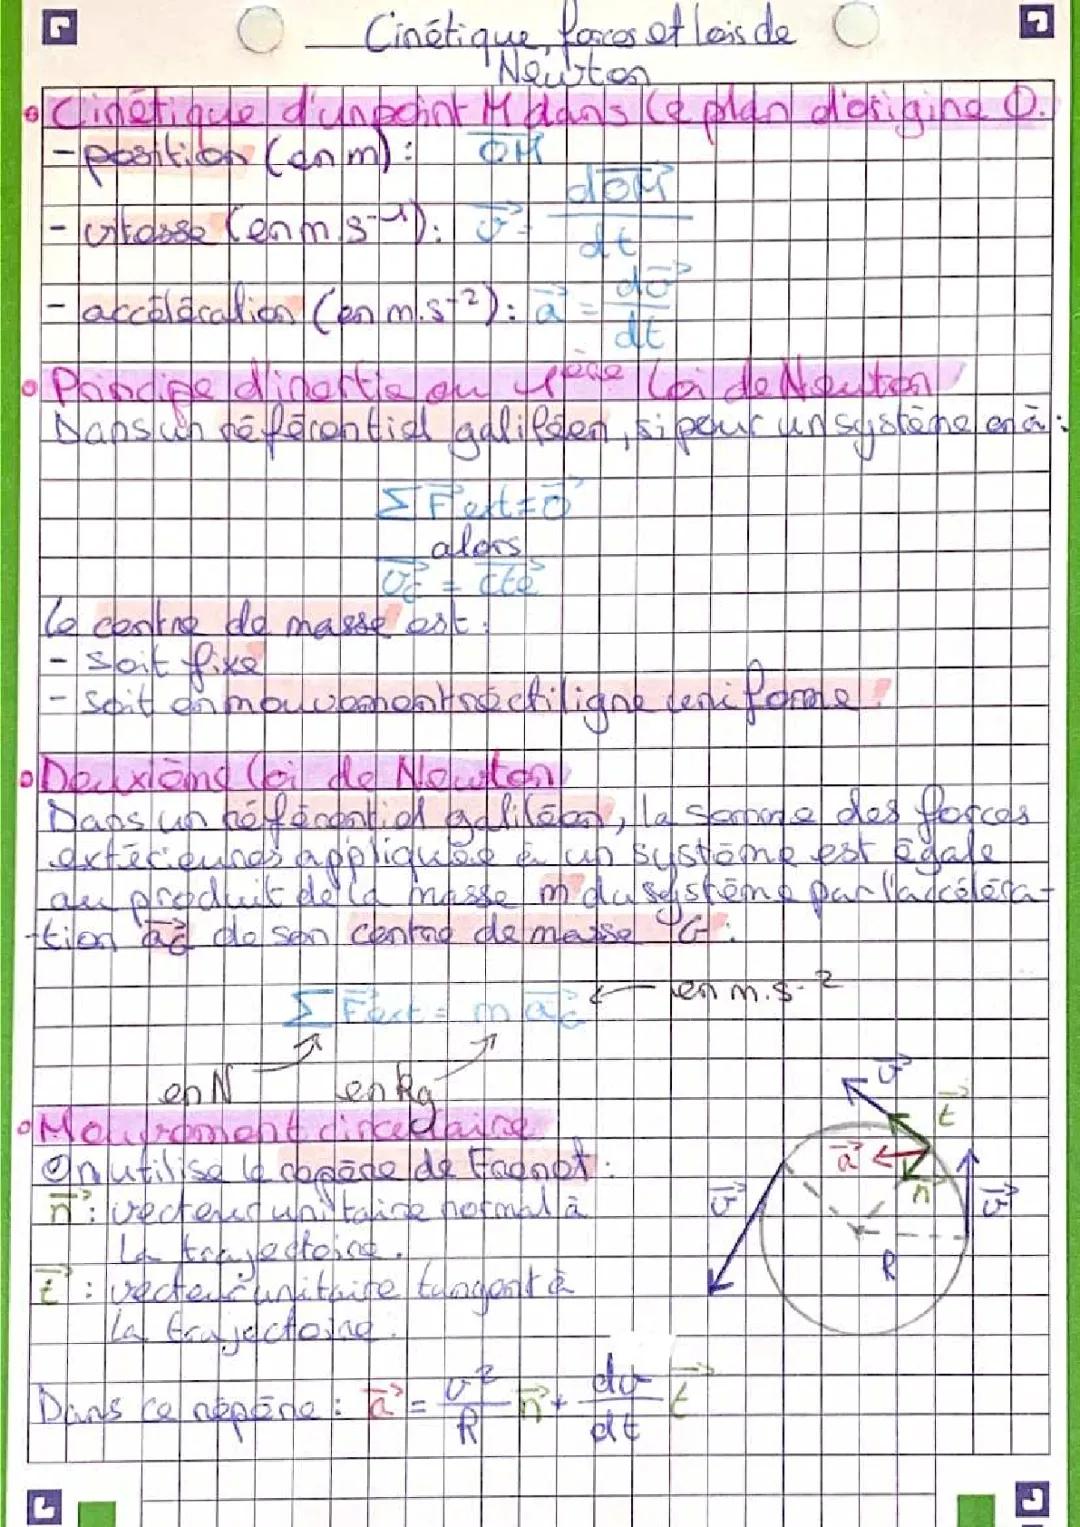 Cinétique, forces et lois de
Newton
Cinétique d'un point M dans le plan d'origine O.
- position (en m) : OM
- vitesse (en m.s⁻¹) : v⃗ = dOM⃗/dt
- accélération (en m.s⁻²) : a⃗ = dv⃗/dt
Principe d'inertie ou 1ère loi de Newton
Dans un référentiel galiléen, si pour un système on a :
ΣF⃗ext = 0⃗
alors
v⃗G = cte⃗
Le centre de masse est :
- soit fixe
- soit en mouvement rectiligne uniforme.
Deuxième loi de Newton
Dans un référentiel galiléen, la somme des forces
extérieures appliquée à un système est égale
au produit de la masse m du système par l'accéléra-
tion a⃗G de son centre de masse G :
ΣF⃗ext = m a⃗G ← en m.s-2
en N en kg
Mouvement circulaire
On utilise le repère de Frenet :
n⃗ : vecteur unitaire normal à
la trajectoire.
t⃗ : vecteur unitaire tangent à
la trajectoire.
v⃗ t⃗ a⃗ n⃗ v⃗ v⃗ R
Dans ce repère : a⃗ = v²/R n⃗ + dv/dt t⃗